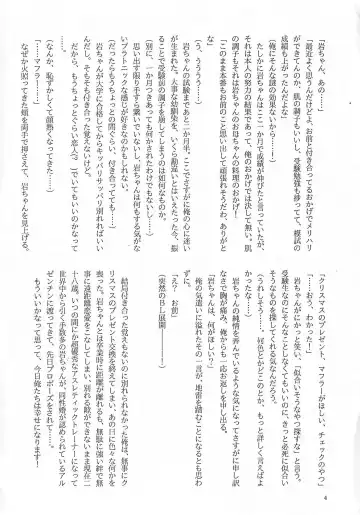 「岩ちゃん、あの…」
「最近よく思うんだけどよ、お前と付き合ってるおかげでメリハリ
ができてんのか、肌の調子もいいし、受験勉強も捗ってて、模試の
成績も上がったんだよな」
（俺にそんな謎の効果ないから……！）
岩ちゃんはここ一カ月で成績が伸びたと言っていたが、
それは本人の努力の結果であって、俺のおかげでは決して無い。肌
の調子もそれは岩ちゃんのおばちゃんの料理のおかげ！
「これからもお前のこと思い出して頑張れそうだわ、ありがと
（う、うううう……）
岩ちゃんの試験まであと二カ月半。ここでさすがに俺の心に迷い
が生まれた。大事な幼馴染を、いくら勘違いとはいえ今、振
ることで受験前の調子を崩してしまうのは如何なものか。
（別に、一カ月つきあっても何かするわけでもないし……！
思い出す限り手すら繋いでいないし、岩ちゃんは何もする気がな
いプラトニックな感じが良きなのかもしれない。
だったらもうちょっと、この関係でいい、付き合った覚えないけど。
そして岩ちゃんが大学に合格してからキッパリサッパリ別れればいい
んだし。そもそも付き合った覚えないけど。
だから、もうちょっとくらい恋人ぶっていてもいいかもなんて、
（なんか、恥ずかしくて顔熱くなってきた……
「……マフラー」
なぜか火照ってきた頬を両手で押さえて、岩ちゃんを見上げる。
「クリスマスのプレゼント、マフラーがほしい、チェックのやつ」
「……おう、わかった！」
岩ちゃんがにかっと笑い、「似合いそうなやつ探すな」と言う。
受験生なのにそんなことしなくてもいいのに。きっと必死に似合い
そうなものを探してくれるんだろうな。
（うれしそう……。何色とかどこのとか、もっと詳しく言えば
岩ちゃんの純情を弄んでいるような気になってさすがに申し訳
なさで胸が痛み、俺からも一応お返しを申し出る。
「岩ちゃんは、何がほしい？」
俺の気遣いに溢れたその一言が、地雷を踏むことになるとも
「え？　お前」
突然のＢＬ展開！
結局付き合った覚えもないのに別れられなかった俺は、無事にク
リスマスのプレゼント交換を終えてしまい、あの日に色々な何かを
失い、岩ちゃんとは卒業時に距離が離れるも、無駄に強い絆で無
事に遠距離恋愛をこなしてしまい、別れる隙ができないまま現在二
十八歳。いつの間にか超優秀なアスレティックトレーナーになって
世界中から引く手数多の岩ちゃんが、同性婚が認められているアル
ゼンチンに渡ってきて、先日プロポーズをされまして……。
もういいかなって思って、今日俺たちは幸せになります！
4